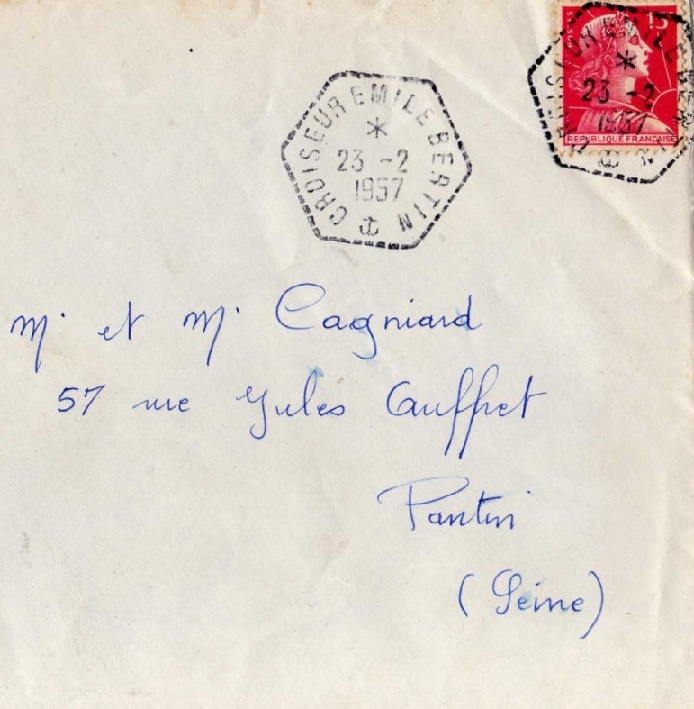 15
REPUBLIQUE FRANÇAISE
CROISEUR EMILE BERTIN
23 -2
1957
CROISEUR EMILE BERTIN
23 -2
1957
M. et M. Cagniard
57 rue Jules Auffret
Pantin
(Seine)